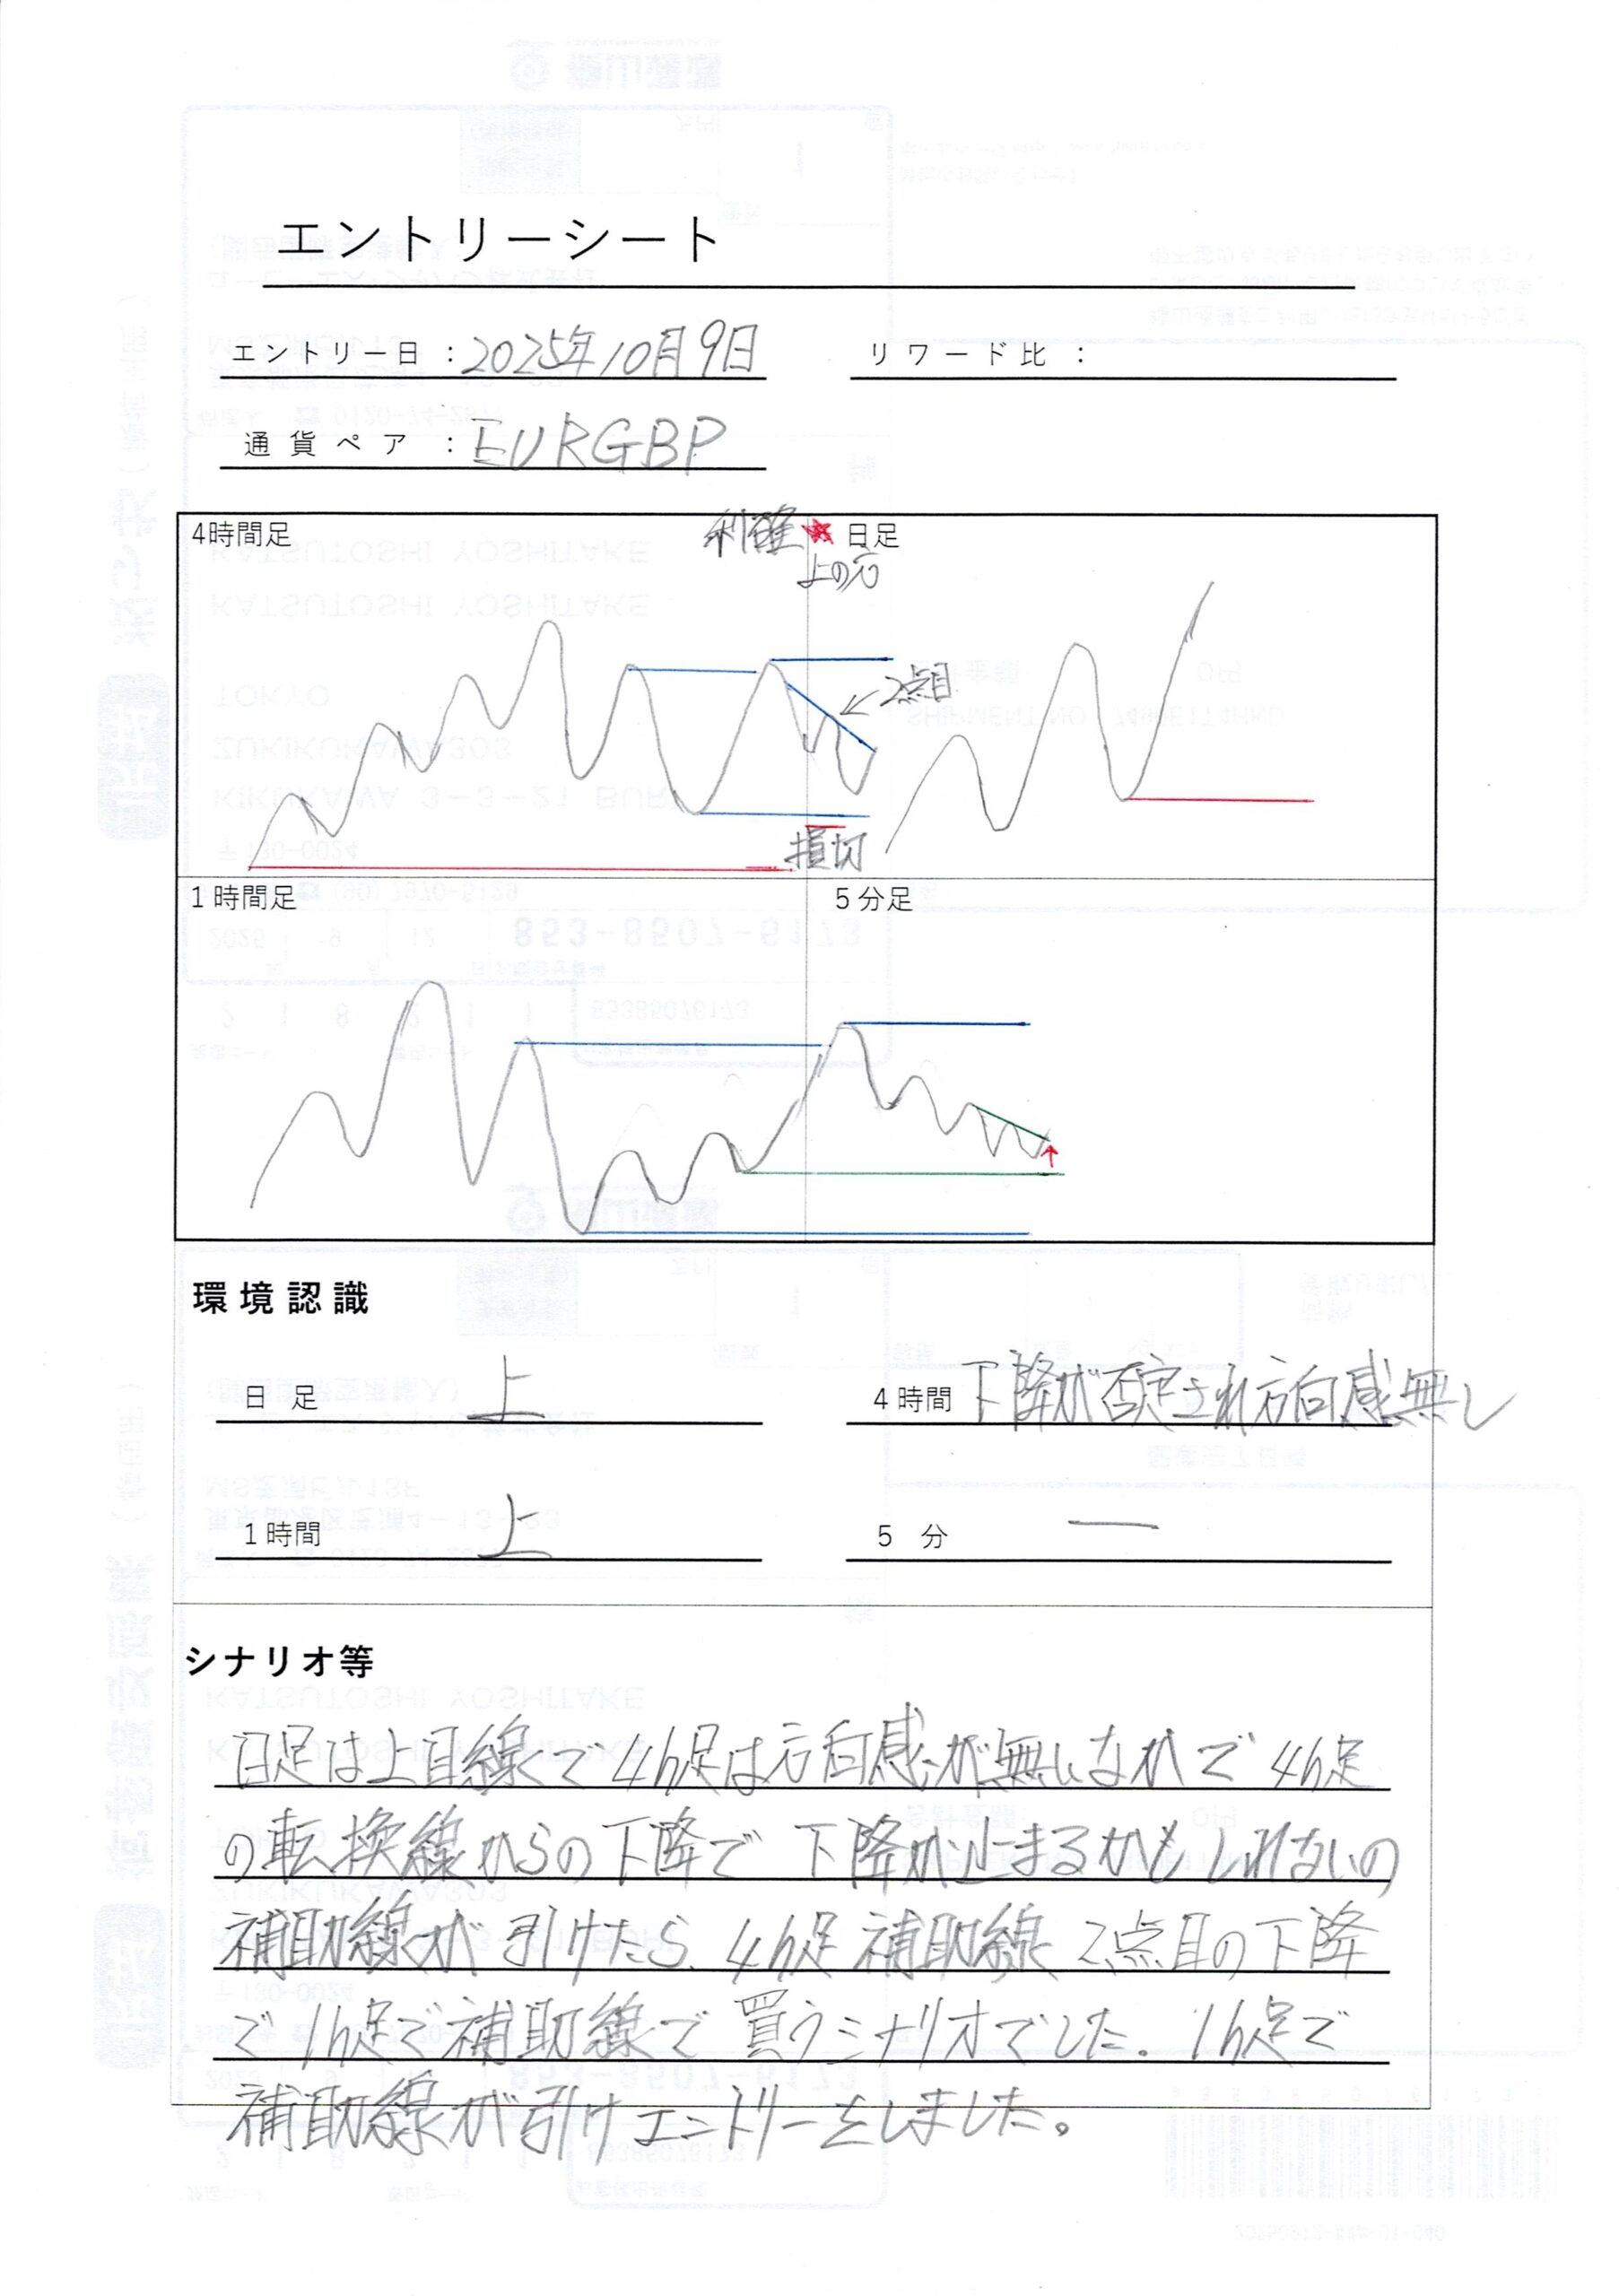 エントリーシート
エントリー日 : 2025年10月9日
リワード比 :
通貨ペア : EURGBP
4時間足
利確
日足
上の方
2点目
損切
1時間足
5分足
環境認識
日足 上
4時間 下降が否定され方向感無し
1時間 上
5分 ー
シナリオ等
日足は上目線で4h足は方向感が無いなかで4h足
の転換線からの下降で下降が止まるかもしれないの
補助線が引けたら、4h足補助線2点目の下降
で1h足で補助線で買うシナリオでした。1h足で
補助線が引けエントリーをしました。